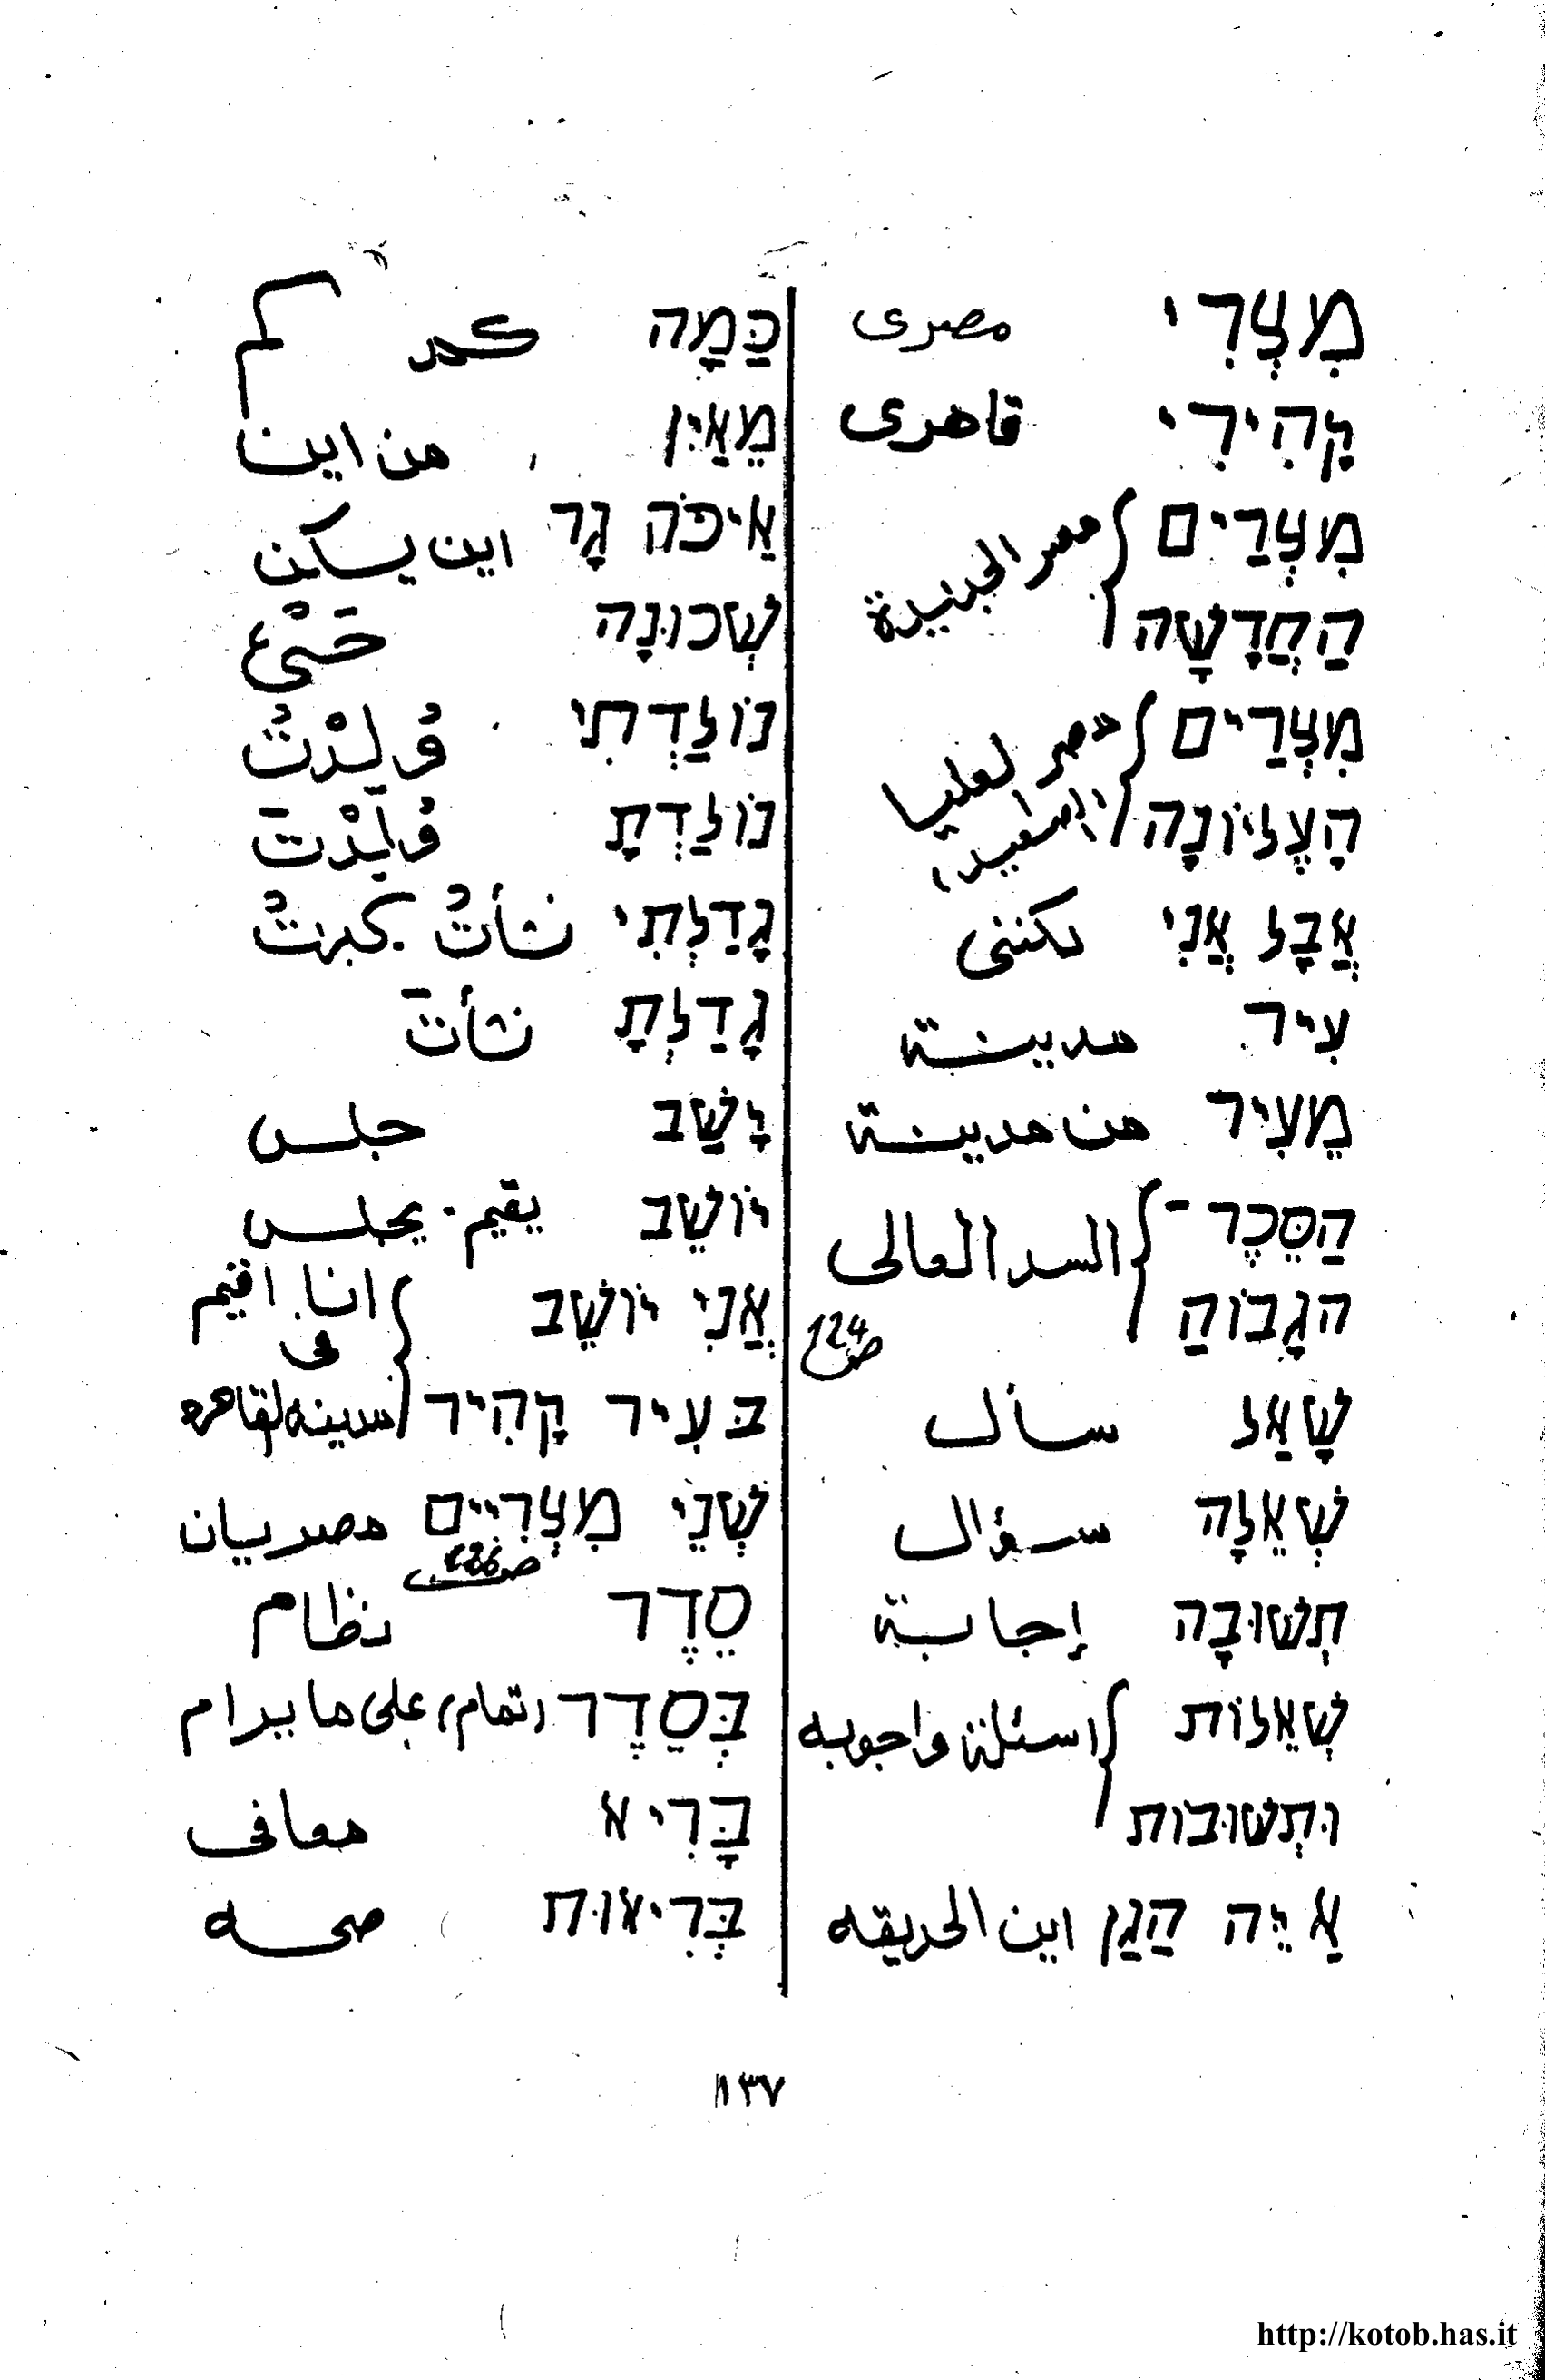 מִצְרִי مصرى
קָהִירִי قاهرى
מִצְרַיִם مصر الجديدة
הַחֲדָשָׁה
מִצְרַיִם مصر لعليا
הָעֶלְיוֹנָה
אֲבָל אֲנִי لكننى
עִיר مدينة
מֵעִיר من مدينة
הַסֵּכֶר - السد العالى
הגָבוֹהַּ ص 124
שָׁאַל سأل
שְׁאֵלָה سؤال
תְשׁוּבָה إجابة
שְׁאֵלוֹת اسئلة واجوبه
וּתְשׁוּבוֹת
אַיֵּה הַגַן اين الحديقه
כַּמָּה كم
מֵאַיִן من اين
אֵיפֹה גָר اين يسكن
שְׁכוּנָה حَىْ
נוֹלַדְתִי وُلِدْتُ
נוֹלַדְתָ وُلِدْتَ
גָדַלְתִי نشأتُ . كبرتُ
גָדַלְתָ نشأتَ
יָשַׁב جلس
יוֹשֵׁב يقيم . يجلس
אֲנִי יוֹשֵׁב انا اقيم فى
בּעִיר קָהִיר مدينه لقاهره
שְׁנֵי מִצְרִיִים مصريان
ص 126
סֵדֶר نظام
בְּסֵדֶר (تمام) على ما يرام
בָּרִיא معافى
בְּרִיאוּת صحه
١٣٧
http://kotob.has.it